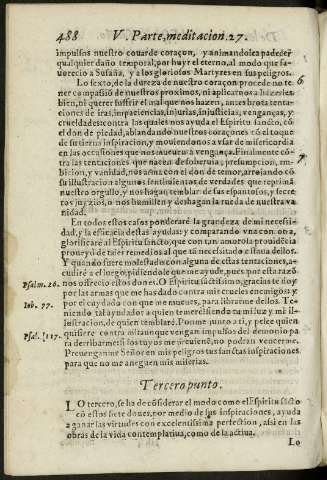 488 V. Parte, meditacion. 27.
impulsos nuestro couarde coraçon, y animandole a padecer
qualquier daño temporal, por huyr el eterno, al modo que fa-
uorecio a Susaña, y a los gloriosos Martyres en sus peligros.
Lo sexto, de la dureza de nuestro coraçõ procede no te- 6
ner compassiõ de nuestros proximos, ni aplicarnos a hazerles
bien, ni querer suffrir el mal que nos hazen, antes brota tenta-
ciones de iras, impaciencias, injurias, injusticias, venganças, y
crueldades: contra las quales nos ayuda el Espiritu sancto, cõ
el don de piedad, ablandando nuestros coraçones cõ el toque
de su tierna inspiracion, y mouiendonos a vsar de misericordia
en las occasiones que nos mueuen a vengança. Finalmente cõ- 7
tra las tentaciones que nacen de soberuia, presumpcion, am-
bicion, y vanidad, nos arma con el don de temor, arrojando cõ
su illustracion algunos sentimientos de verdades que repriman
nuestro orgullo, y nos hagan temblar de sus espantosos, y secre
tos juyzios, o nos humillen y deshagan la rueda de nuestra va
nidad.
En todos estos casos ponderarè la grandeza de mi necessi-
dad, y la eficacia destas ayudas: y comparando vna con otra,
glorificarè al Espiritu sancto, que con tan amorosa prouidẽcia
proueyò de tales remedios al que tã necessitado estaua dellos.
Y quando fuere molestado con alguna de estas tentaciones, a-
cudirè a el luego, pidiendole que me ayude, pues por esta razõ
Psalm. 26. nos ofrecio estos dones. O Espiritu sãctissimo, gracias te doy
por las armas que me has dado contra mis crueles enemigos, y
Iob. 77. por el cuydado con que me mueues, para librarme dellos. Te-
niendo tal ayudador a quien temerè? siendo tu mi luz y mi il-
luminacion, de quien temblarè? Ponme junto a ti, y pelee quien
Psal. 117. quisiere contra mi: aunque vengan impulsos del demonio pa
ra derribarme, si los tuyos me preuienẽ, no podran vencerme.
Preuenganme Señor en mis peligros tus sanctas inspiraciones
para que no me aneguen mis miserias.
Tercero punto.
LO tercero, se ha de cõsiderar el modo como el Espiritu sãcto
cõ estos siete dones, por medio de sus inspiraciones, ayuda
a ganar las virtudes con excelentissima perfection, assi en las
obras de la vida contemplatiua, como de la actiua.
Lo